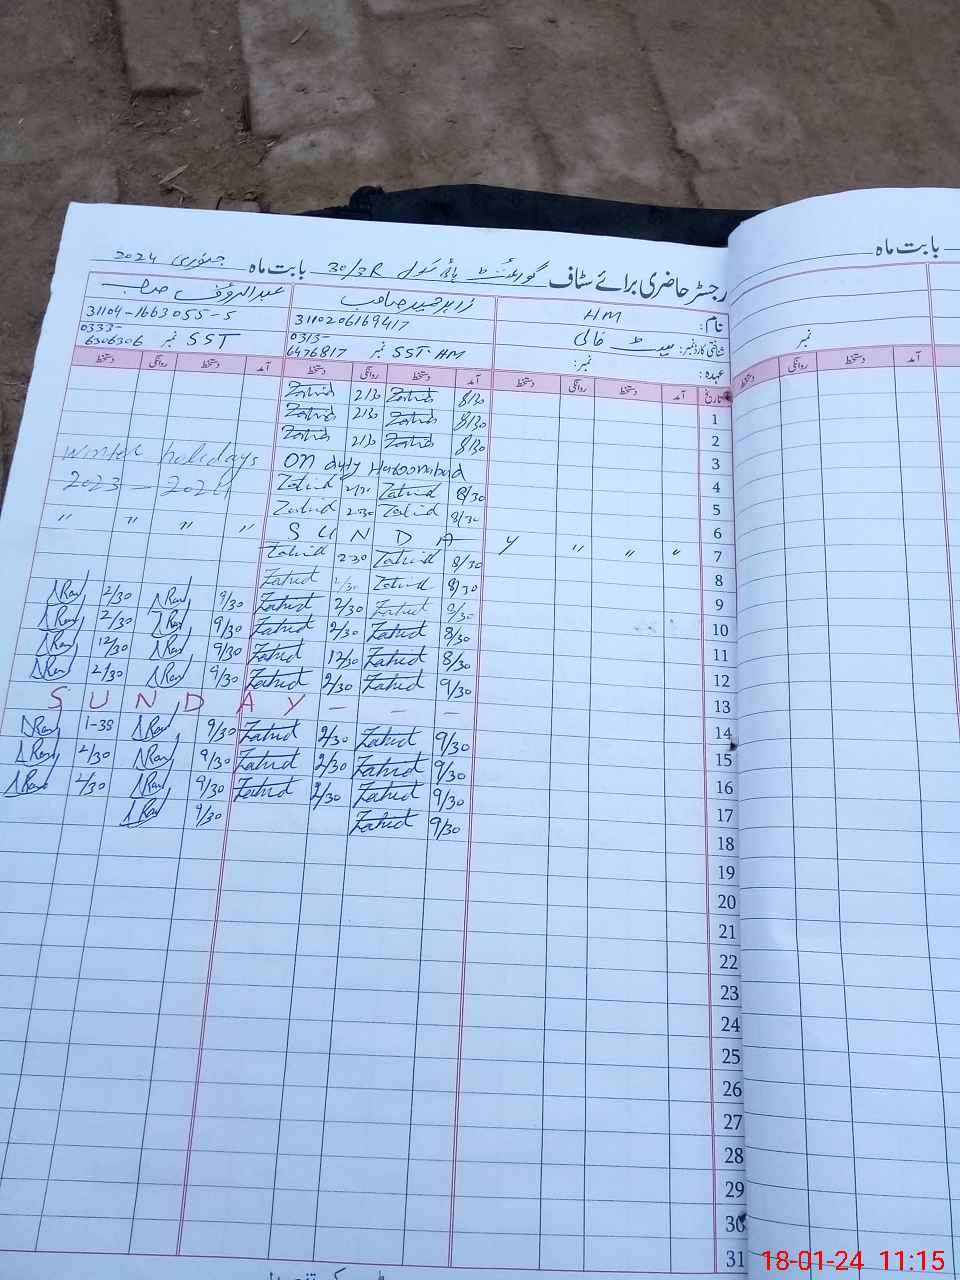 رجسٹر حاضری برائے سٹاف گورنمنٹ ہائی سکول 30/3R بابت ماہ جنوری 2024
بابت ماہ
نام: HM زاہد حمید صاحب عبدالروف صاحب
شناختی کارڈ نمبر: سیٹ خالی 3110206169417 31104-1663055-5
عہدہ: نمبر: SST-HM نمبر 0313-6476817 SST نمبر 0333-6306306
نمبر
تاریخ آمد دستخط روانگی دستخط آمد دستخط روانگی دستخط آمد دستخط روانگی دستخط
آمد دستخط روانگی دستخط
1 8/30 Zahid 2/30 Zahid
2 8/30 Zahid 2/30 Zahid
3 8/30 Zahid 2/30 Zahid
4 on duty Haroonabad
winter holidays
2023 — 2024
5 8/30 Zahid 2/30 Zahid
6 8/30 Zahid 2:30 Zahid
7 S U N D A Y " " " " " " "
8 8/30 Zahid 2:30 Zahid
9 8/30 Zahid 2/30 Zahid
10 8/30 Zahid 2/30 Zahid 9/30 ARauf 2/30 ARauf
11 8/30 Zahid 2/30 Zahid 9/30 ARauf 2/30 ARauf
12 8/30 Zahid 12/30 Zahid 9/30 ARauf 12/30 ARauf
13 9/30 Zahid 2/30 Zahid 9/30 ARauf 2/30 ARauf
14 S U N D A Y — — —
15 9/30 Zahid 2/30 Zahid 9/30 ARauf 1-38 ARauf
16 9/30 Zahid 2/30 Zahid 9/30 ARauf 2/30 ARauf
17 9/30 Zahid 2/30 Zahid 9/30 ARauf 2/30 ARauf
18 9/30 Zahid 9/30 ARauf
19
20
21
22
23
24
25
26
27
28
29
30
31
18-01-24 11:15